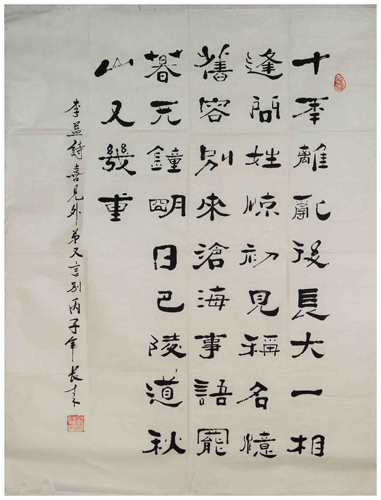 十年離亂後長大一相
逢問姓惊初見稱名憶
舊容別來滄海事語罷
暮天鐘明日巴陵道秋
山又幾重
李益詩喜見外弟又言別丙子年長